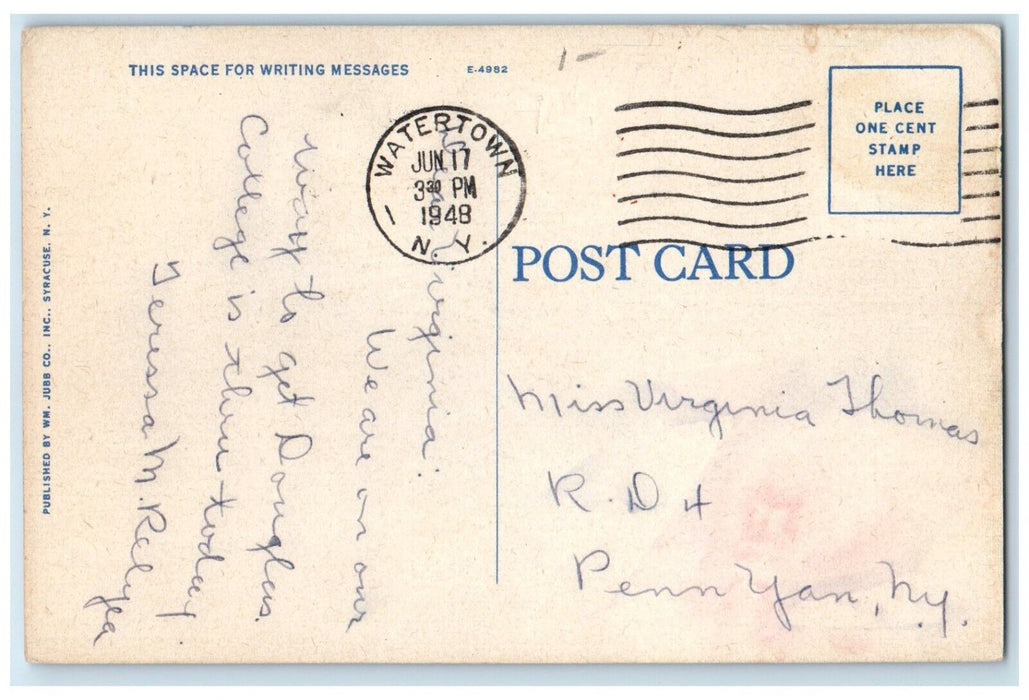 THIS SPACE FOR WRITING MESSAGES
E-4982
1-
WATERTOWN
JUN 17
3 30 PM
1948
N.Y.
1
PLACE
ONE CENT
STAMP
HERE
POST CARD
PUBLISHED BY WM. JUBB CO., INC., SYRACUSE, N. Y.
Dear Virginia:
We are on our
way to get Douglas.
College is thru today.
Teressa M. Relyea
Miss Virginia Thomas
R. D 4
Penn Yan, Ny.